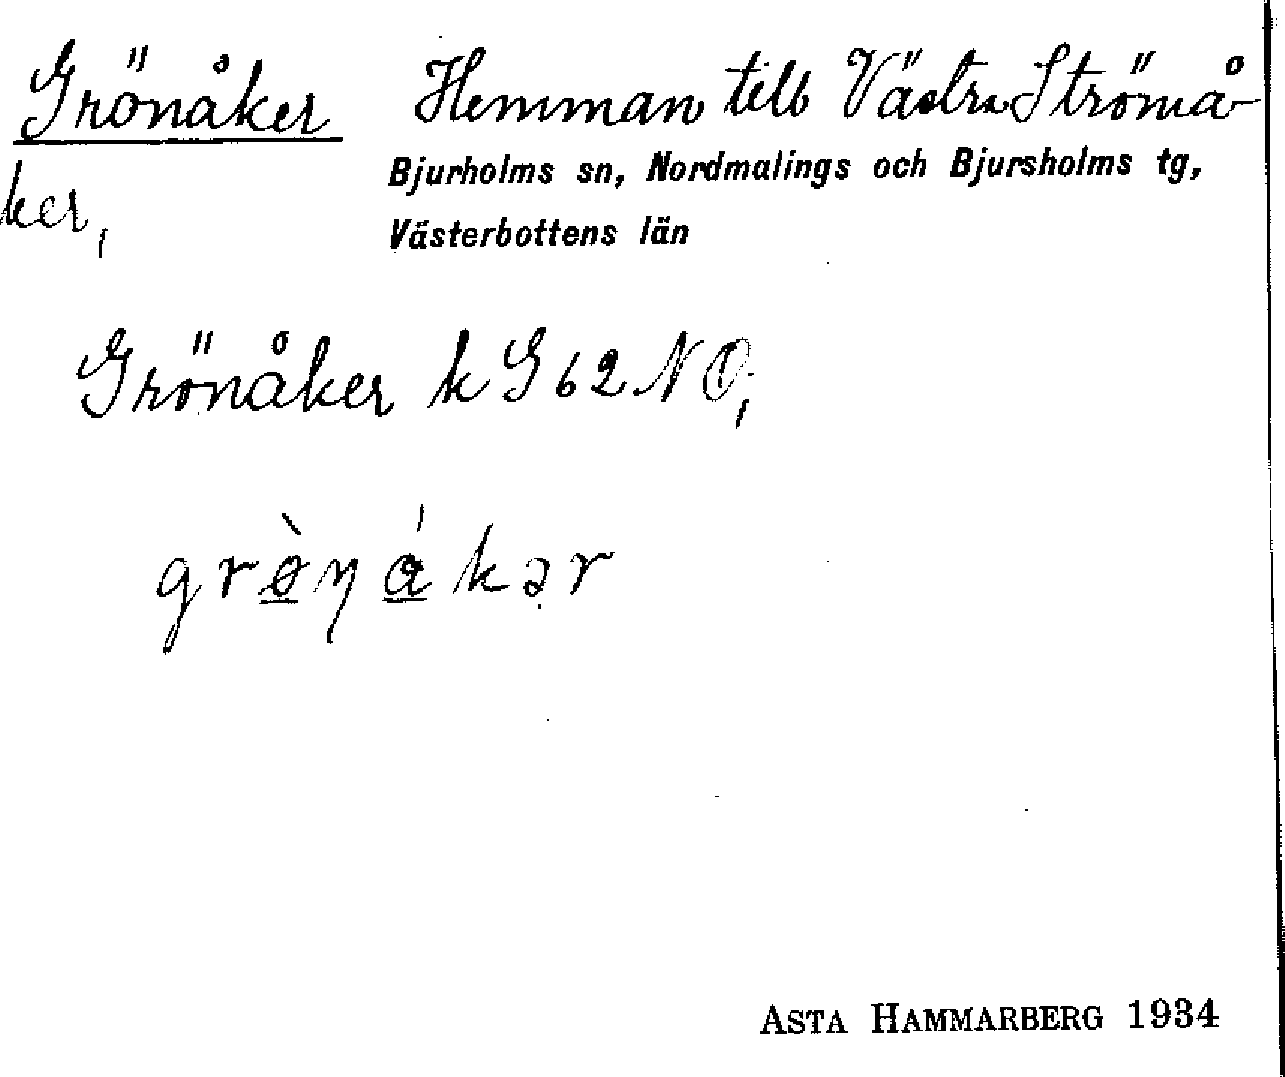 Grönåker Hemman till Västra Strömå-
ker,
Bjurholms sn, Nordmalings och Bjursholms tg,
Västerbottens län
Grönåker k G 62 NO,
grø̠̀ŋá̠kər
ASTA HAMMARBERG 1934